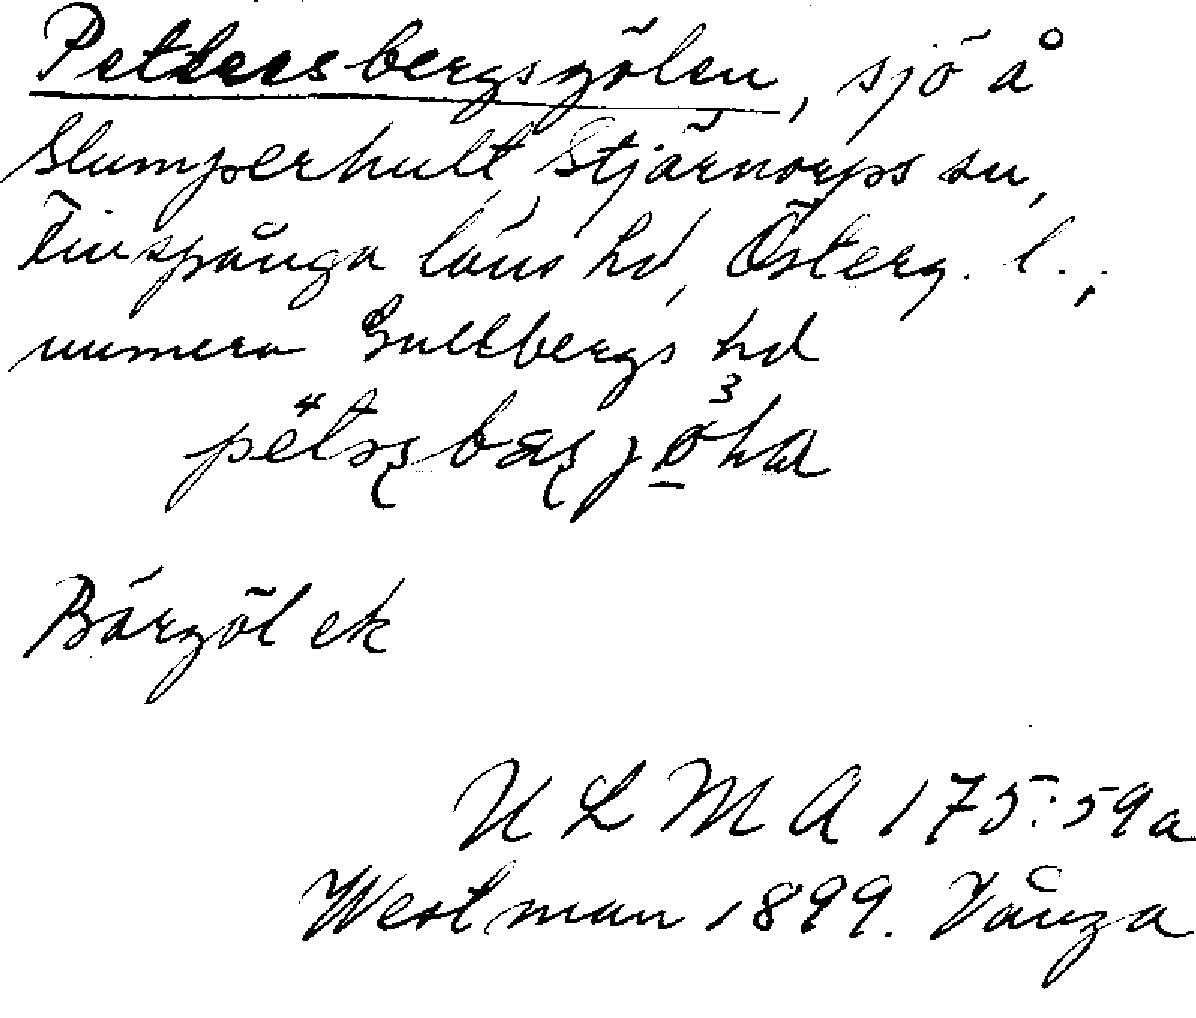 Pettersbergsgölen, sjö å
Slumperhult, Stjärnorps sn,
Finspånga läns hd, Österg. l.,
numera Gullbergs hd
Bärgöl ek
U L M A 175:59a
Westman 1899. Vånga